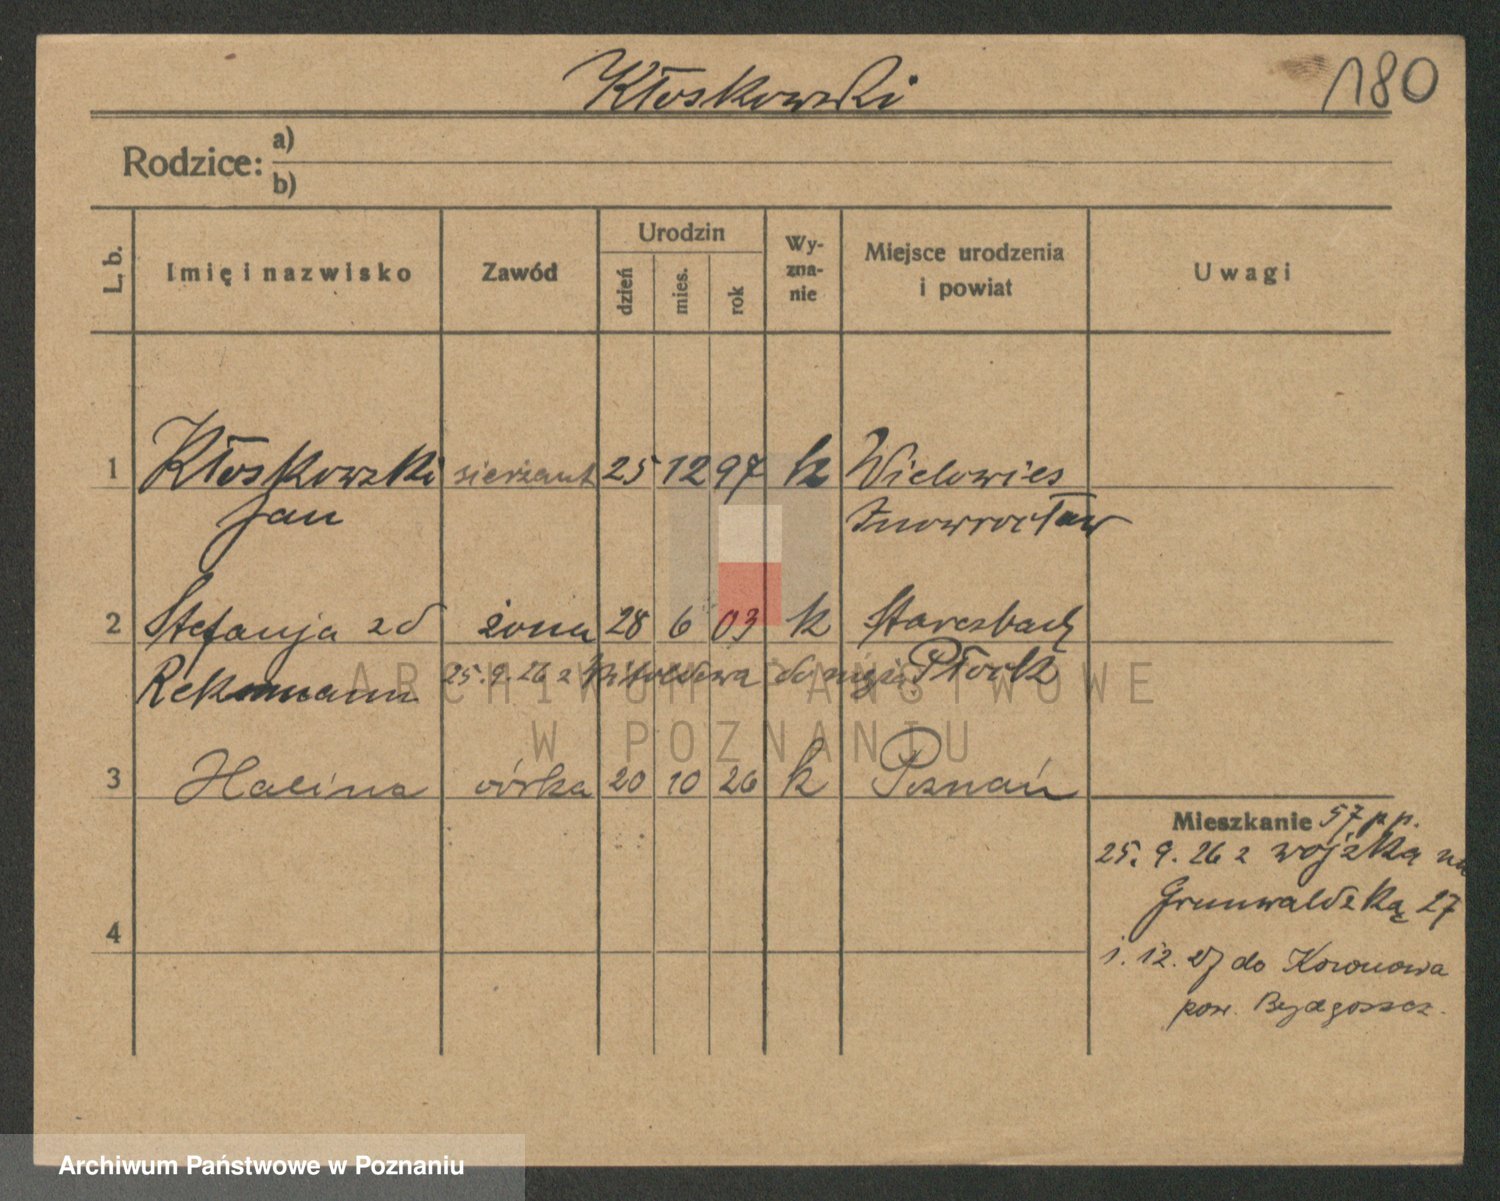 Kłoskowski
180
Rodzice: a)
b)
L. b. Imię i nazwisko Zawód Urodzin dzień mies. rok Wy-zna-nie Miejsce urodzenia i powiat Uwagi
1 Kłoskowski sierżant 25 12 97 k Wielowies
Jan Inowrocław
2 Stefanja zd żona 28 6 03 k
25.9.26 z do męża Płock
3 Halina córka 20 10 26 k Poznań
Mieszkanie 57 p.p.
25. 9. 26 z wojska na
Grunwaldzką 27
1. 12. 27 do Koronowa
pow. Bydgoszcz.
4
ARCHIWUM PAŃSTWOWE
W POZNANIU
Archiwum Państwowe w Poznaniu